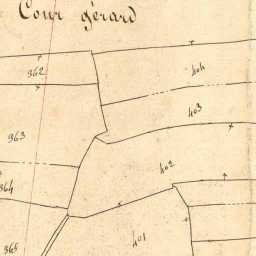 Cour gérard
362
404
403
363
402
364
401
365